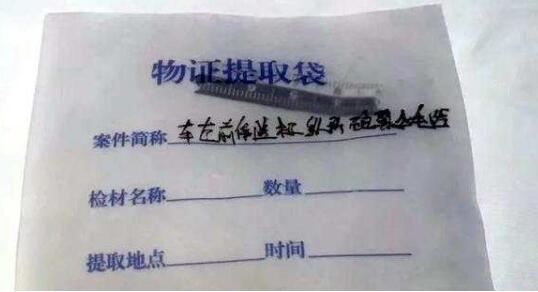 物证提取袋
案件简称 车左前保险杠
检材名称 数量
提取地点 时间